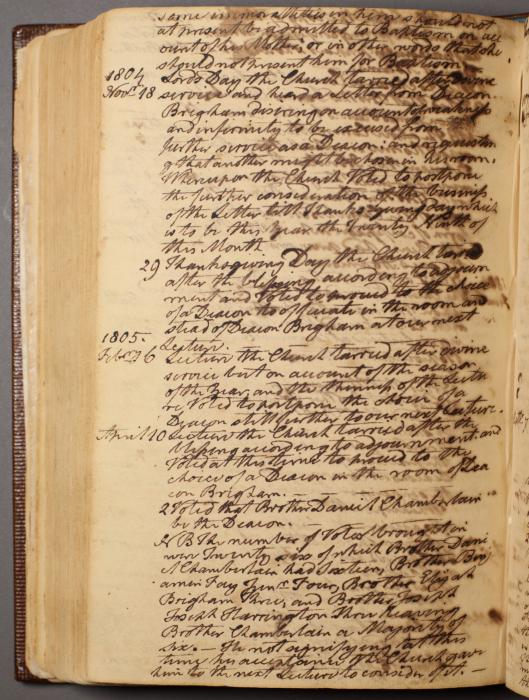 same immoralities in him should not
at present be admitted to Baptism on acc
ount of the Mother, or in other words that she
should not present them for Baptism
1804 Lords Day the Church tarried after divine
Novr 18 service and heard a Letter from Deacon
Brigham desiring on account of weakness
and infirmity to be excused from
further service as a Deacon: and requestin
g that another might be chosen in his room.
Whereupon the Church Voted to postpone
the further consideration of the business
of the Letter till Thanksgiving day which
is to be this year the Twenty Ninth of
this Month
29 Thanksgiving Day the Church tarried
after the blessing according to adjourn
ment and Voted to proceed to the choice
of a Deacon to officiate in the room and
stead of Deacon Brigham at our next
1805. Lecture.
Febry 6 Lecture the Church tarried after divine
service but on account of the season
of the Year, and the thinness of the Lectu
re, Voted to postpone the choice of a
Deacon still further to our next Lecture.
April 10 Lecture the Church tarried after the
blessing according to adjournment: and
Voted at this time to proceed to the
choice of a Deacon in the room of Dea
con Brigham. —
2 Voted that Brother Daniel Chamberlain
be the Deacon.
N B The number of Votes brought in
were Twenty six of which Brother Dani
el Chamberlain had sixteen, Brother Benj
amin Fay Junr Four, Brother Elijah
Brigham Three, and Brother Joseph
Joseph Harrington Three leaving
Brother Chamberlain a Majority of
six. — He not signifying at this
time his acceptance of the Church gave
him to the next Lecture to consider of it. —